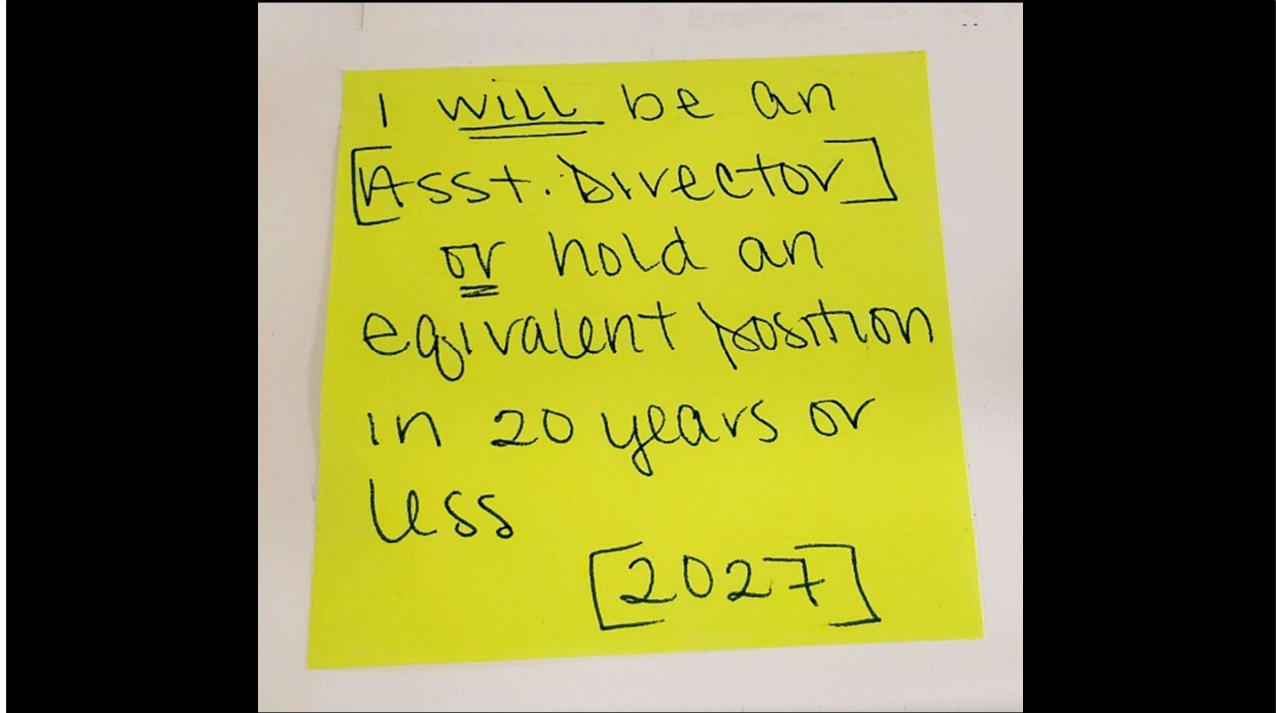 I will be an
[Asst. Director]
or hold an
eqivalent position
in 20 years or
less
[2027]